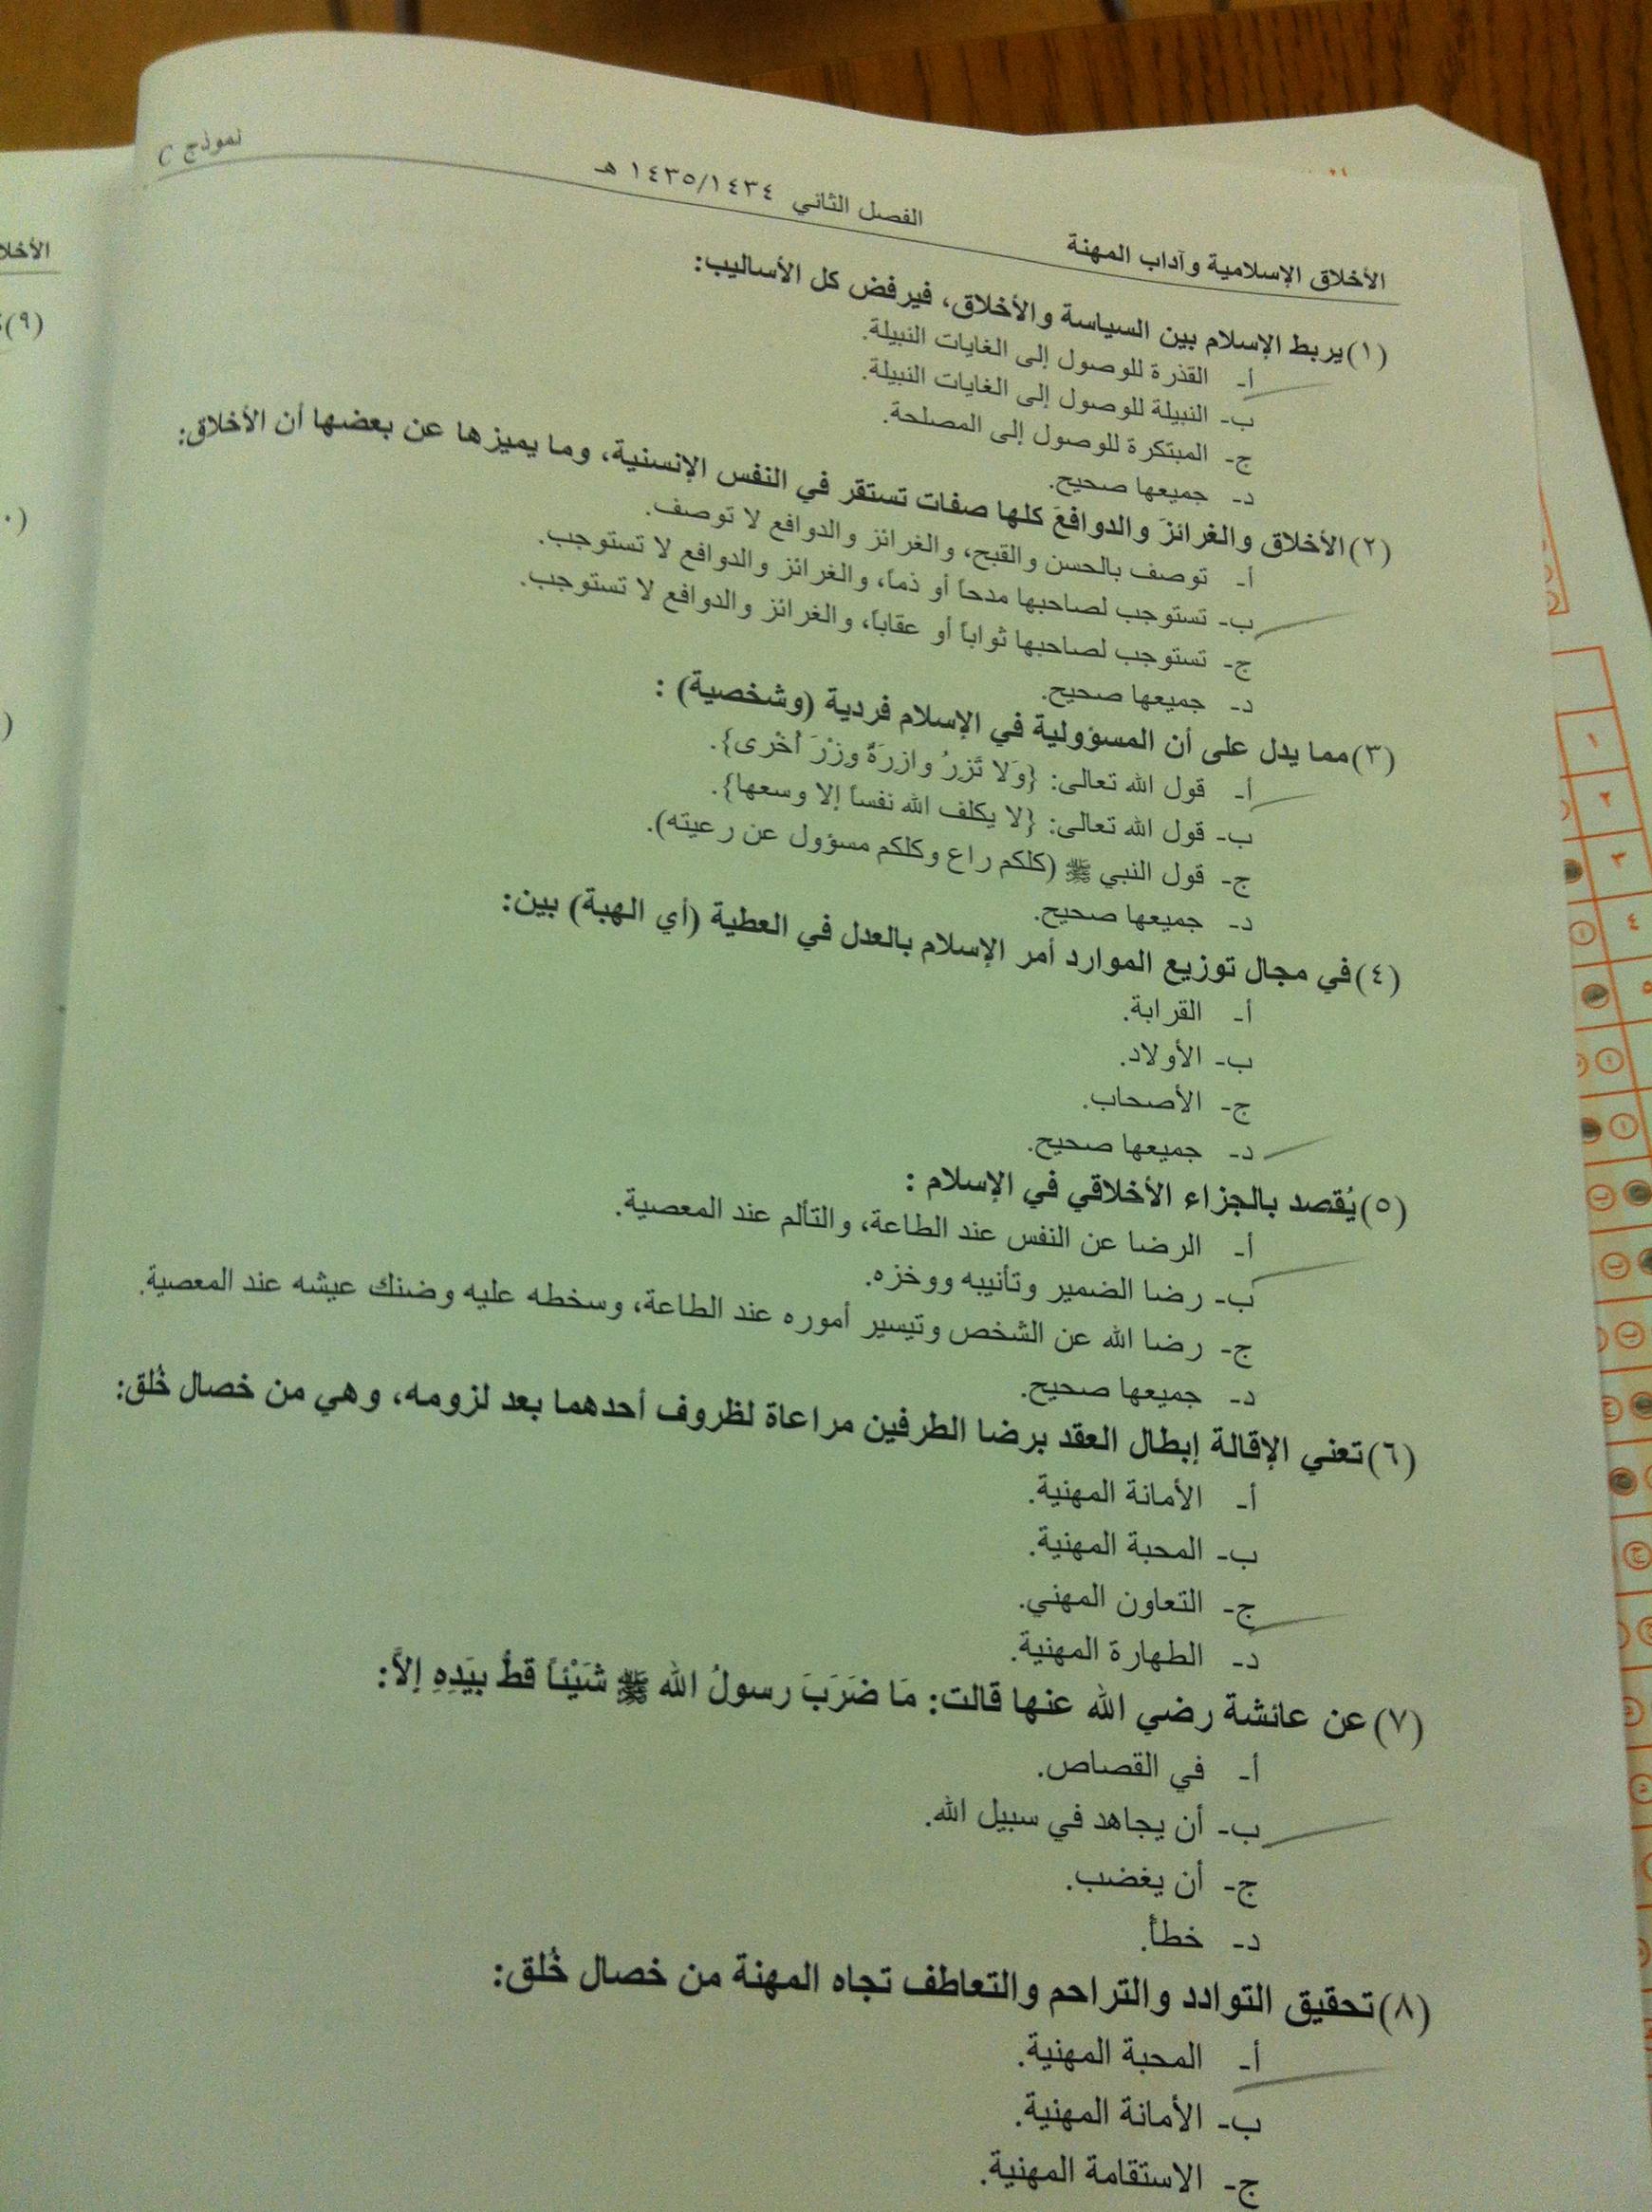 الأخلاق الإسلامية وآداب المهنة الفصل الثاني ١٤٣٥/١٤٣٤ هـ نموذج C
(١) يربط الإسلام بين السياسة والأخلاق، فيرفض كل الأساليب:
أ- القذرة للوصول إلى الغايات النبيلة.
ب- النبيلة للوصول إلى الغايات النبيلة.
ج- المبتكرة للوصول إلى المصلحة.
د- جميعها صحيح.
(٢) الأخلاق والغرائزَ والدوافعَ كلها صفات تستقر في النفس الإنسنية، وما يميزها عن بعضها أن الأخلاق:
أ- توصف بالحسن والقبح، والغرائز والدوافع لا توصف.
ب- تستوجب لصاحبها مدحاً أو ذماً، والغرائز والدوافع لا تستوجب.
ج- تستوجب لصاحبها ثواباً أو عقاباً، والغرائز والدوافع لا تستوجب.
د- جميعها صحيح.
(٣) مما يدل على أن المسؤولية في الإسلام فردية (وشخصية) :
أ- قول الله تعالى: {وَلا تَزِرُ وازِرَةٌ وِزْرَ أُخْرى}.
ب- قول الله تعالى: {لا يكلف الله نفساً إلا وسعها}.
ج- قول النبي ﷺ (كلكم راع وكلكم مسؤول عن رعيته).
د- جميعها صحيح.
(٤) في مجال توزيع الموارد أمر الإسلام بالعدل في العطية (أي الهبة) بين:
أ- القرابة.
ب- الأولاد.
ج- الأصحاب.
د- جميعها صحيح.
(٥) يُقصد بالجزاء الأخلاقي في الإسلام :
أ- الرضا عن النفس عند الطاعة، والتألم عند المعصية.
ب- رضا الضمير وتأنيبه ووخزه.
ج- رضا الله عن الشخص وتيسير أموره عند الطاعة، وسخطه عليه وضنك عيشه عند المعصية.
د- جميعها صحيح.
(٦) تعني الإقالة إبطال العقد برضا الطرفين مراعاة لظروف أحدهما بعد لزومه، وهي من خصال خُلق:
أ- الأمانة المهنية.
ب- المحبة المهنية.
ج- التعاون المهني.
د- الطهارة المهنية.
(٧) عن عائشة رضي الله عنها قالت: مَا ضَرَبَ رسولُ الله ﷺ شَيْئاً قطُّ بِيَدِهِ إلاَّ:
أ- في القصاص.
ب- أن يجاهد في سبيل الله.
ج- أن يغضب.
د- خطأً.
(٨) تحقيق التوادد والتراحم والتعاطف تجاه المهنة من خصال خُلق:
أ- المحبة المهنية.
ب- الأمانة المهنية.
ج- الاستقامة المهنية.
(٩)
١
٢
٣
٤